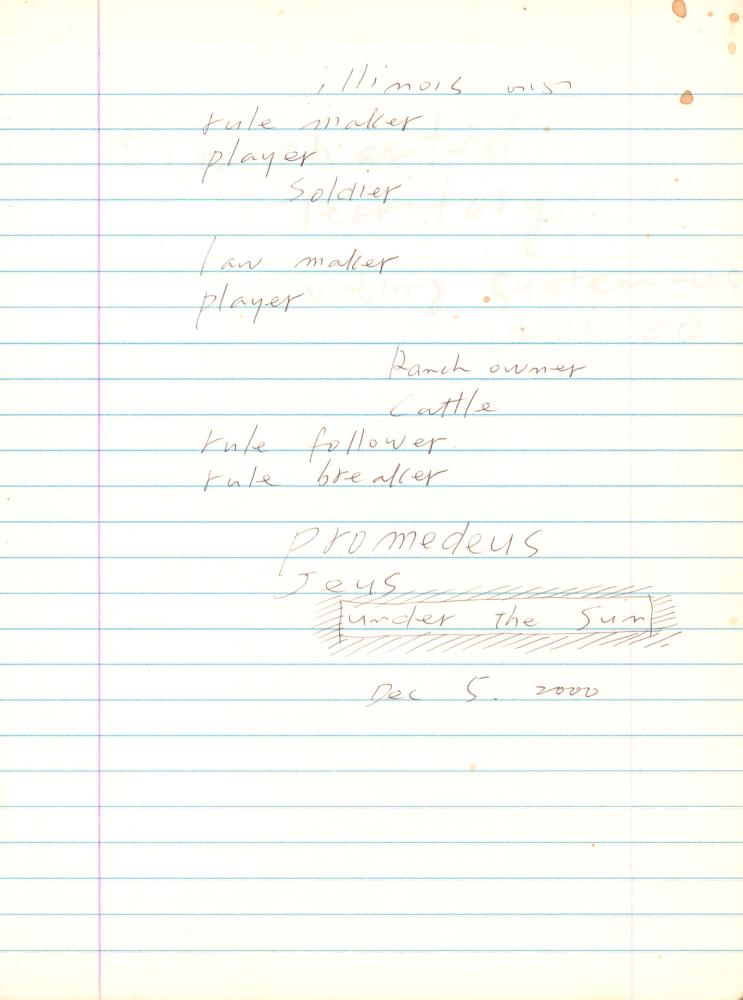 illinois
rule maker
player
Soldier
law maker
player
Ranch owner
Cattle
rule follower
rule breaker
promedeus
Jeus
under the Sun
Dec 5. 2000